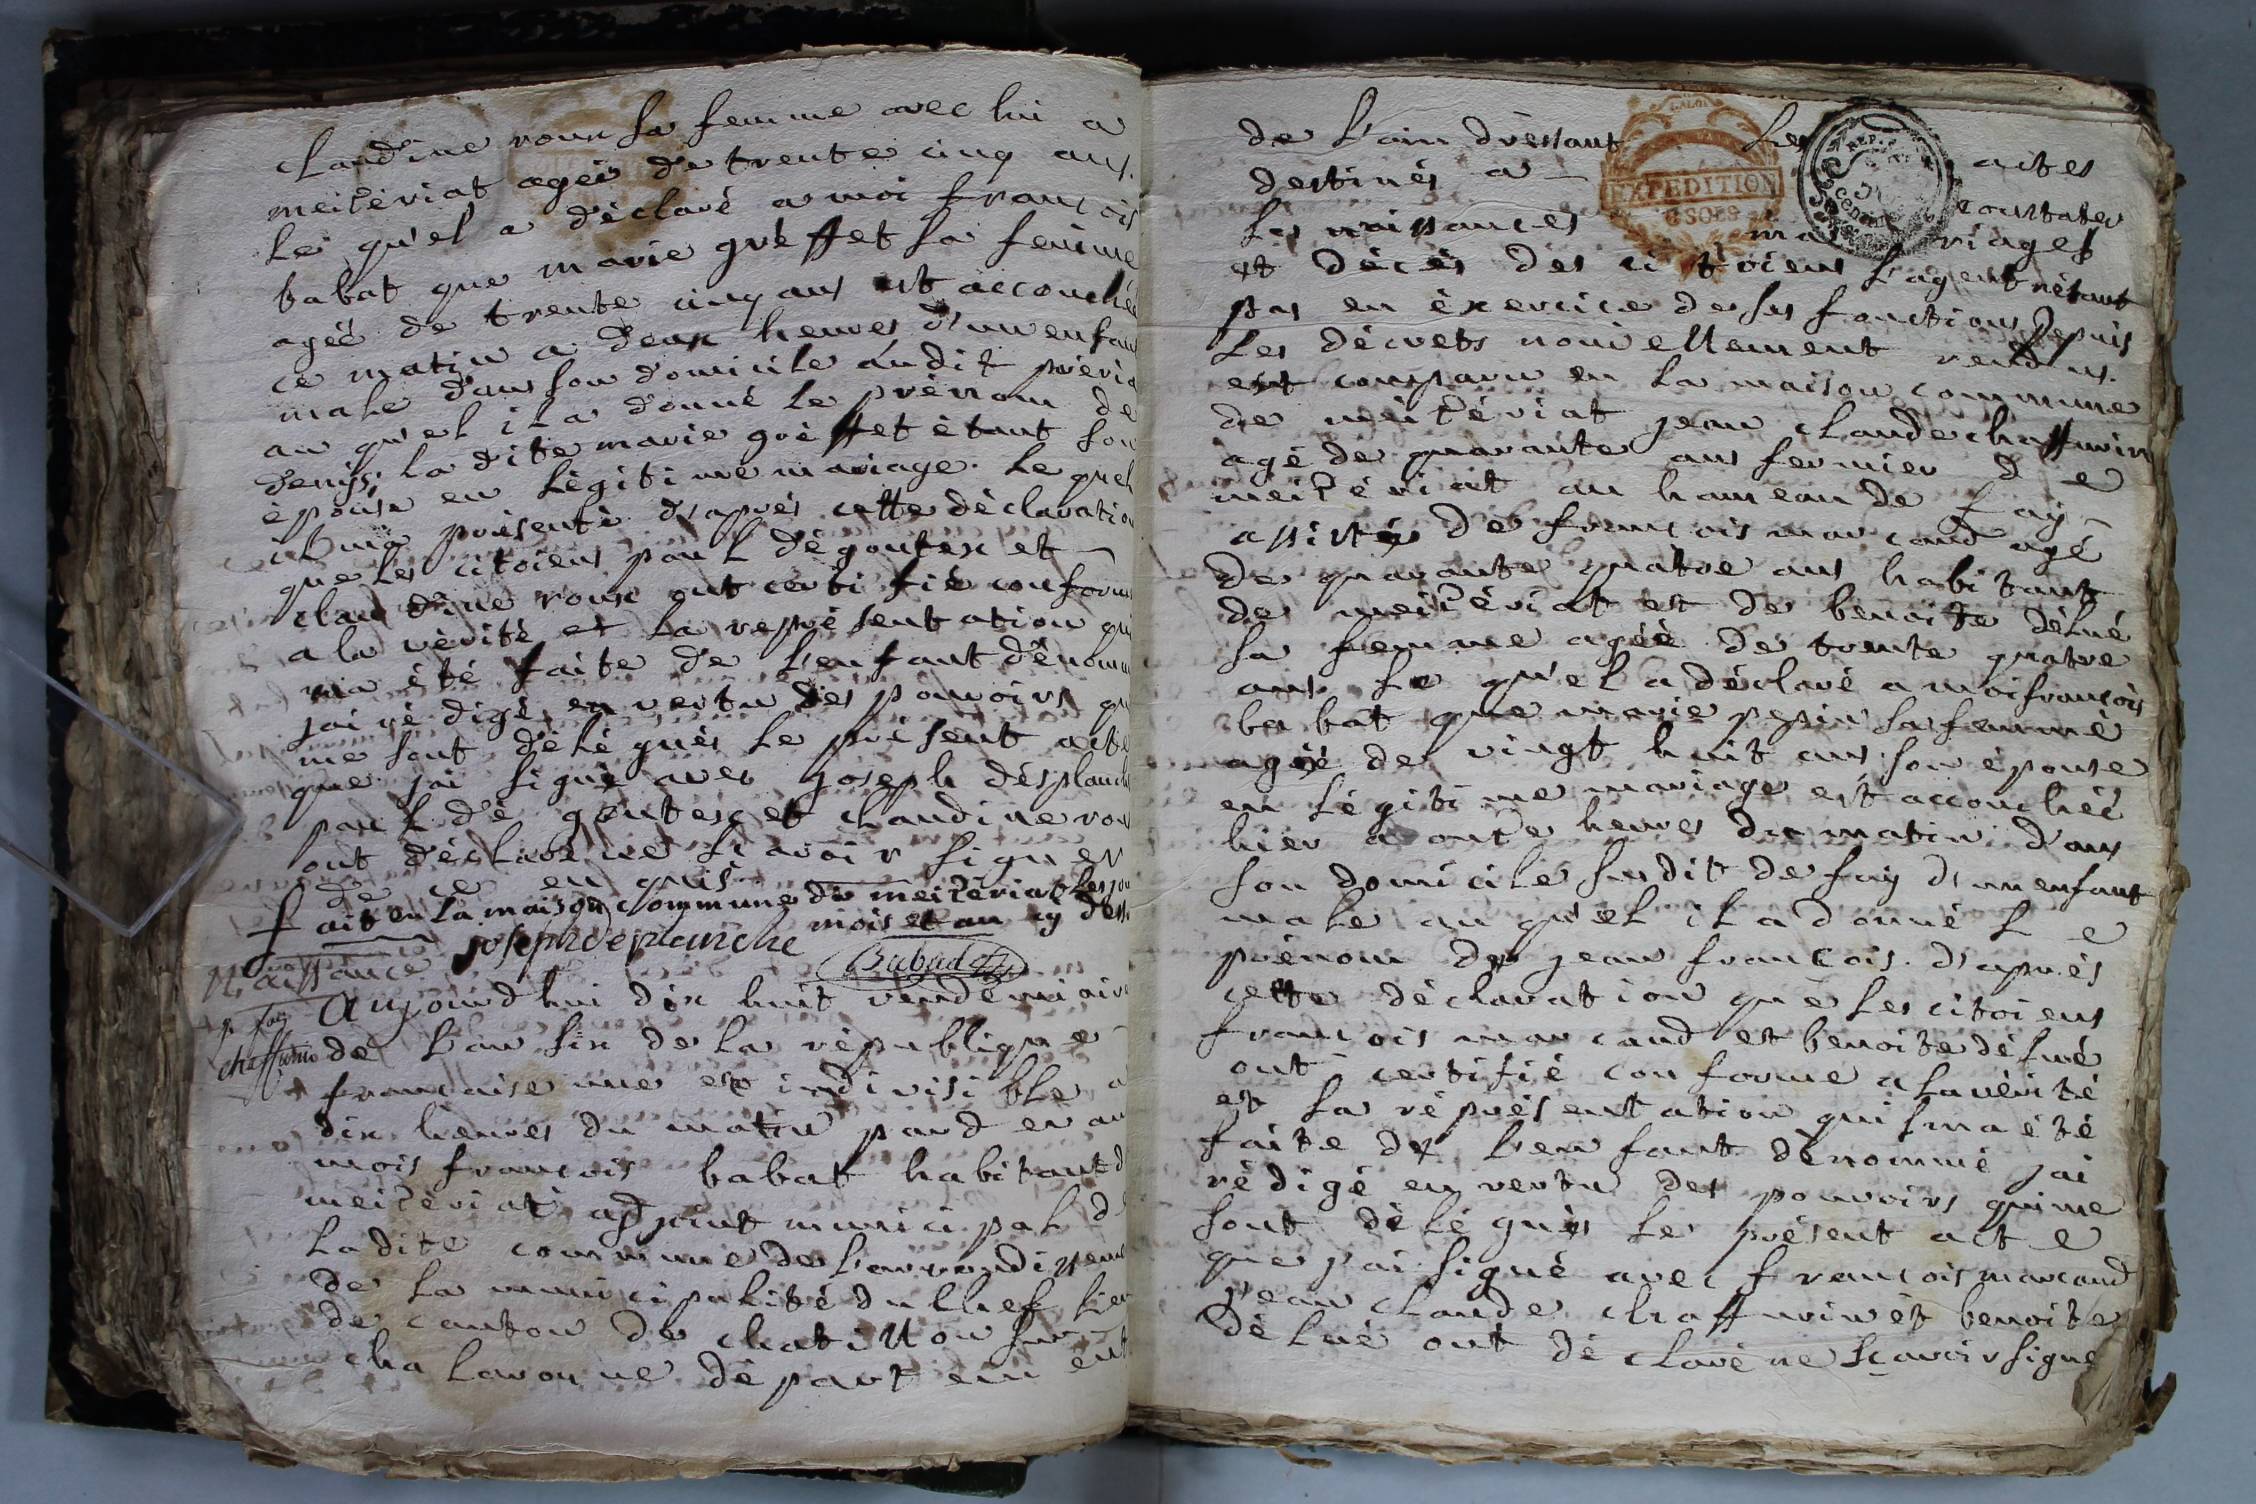 Claudine roux sa femme avec lui a
meitèriat ageè de trente cinq ans.
le qu'el a dèclarè a moi francois
babat que marie grèffet sa femme
ageè de trente cinq ans est accouchèe
ce matin a deux heures d'un enfant
male dans son domicile audit
au qu'el il a donnè le prènom de
denys; la dite marie grèffet ètant son
èpouse en lègitime mariage. le quel
il m'a prèsentè. d'aprés cette dèclaration
que les citoiens paul dègoutex et
claudine roux ont certifiè conforme
a la vèritè et la reprèsentation qui
m'a ètè faite de l'enfant dènommè
jai rèdigè en vertu des pouvoirs qui
me sont dèlèguès le prèsent acte
que jai signè avec joseph dèsplanche
paul dègoutex et claudine roux
ont dèclarè ne scavoir signer
de ce enquis.
fait en la maison commune de meitèriat les jour
mois et an cy dess.
joseph deplanche Babad
Naissance
p. fay
chaffurin
Aujourd'hui dix huit vendèmiaire
de l'an six de la rèpublique
francaise une et indivisible a
dix heures du matin pardevant
mois francois babat habitant de
meitèriat adjoint municipal de
ladite commune de l'arrondissement
de la municipalitè du chef lieu
de canton de chatillon sur
chalaronne dèpartement
de l'ain dressant les actes
destinès a constater
les naissances mariages
et dècès des citoiens l'agent nètant
pas en èxercice de ses fonctions depuis
les dècrets nouvellement rendus.
est comparu en la maison commune
de meitèriat jean claude chaffurin
agè de quarante ans fermier de
meitèriat au hameau de fay
assistè de francois marcand agè
de quarante quatre ans habitant
de meitèriat et de benoite dèluè
sa femme agèè de trente quatre
ans. le qu'el a dèclarè a moi francois
babat que marie pepin sa femme
ageè de vingt huit ans son èpouse
en lègitime mariage est accouchèe
hier a onze heures du matin dans
son domicile susdit de fay d'un enfant
male au qu'el il a donnè le
prènom de jean francois. d'aprés
cette dèclaration que les citoiens
francois marcand et benoite dèluè
ont certifiè conforme a la vèritè
et la rèprèsentation qui m'a ètè
faite de l'enfant dènommè jai
rèdigè en vertu des pouvoirs qui me
sont dèlèguès le prèsent acte
que j'ai signè avec francois marcand
jean claude chaffurin èt benoite
dèluè ont dèclarè ne scavoir signe
EXPEDITION
6 SOLS
REP.